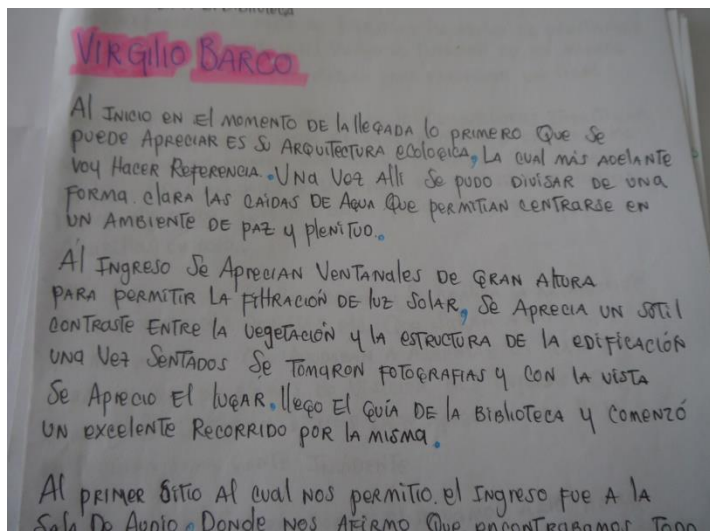 BIBLIOTECA
VIRGILIO BARCO
Al INICIO EN El MOMENTO DE la llEGADA lo PRIMERO QUE SE
PUEDE APRECIAR ES SU ARQUITECTURA ECOLOGICA, LA CUAL MAS ADELANTE
VOY HACER REFERENCIA. UNA VEZ Alli SE PUDO DIVISAR DE UNA
FORMA. CLARA LAS CAIDAS DE AGUA QUE PERMITIAN CENTRARSE EN
UN AMBIENTE DE PAZ Y PLENITUD.
Al INGRESO SE APRECIAN VENTANALES DE GRAN AltURA
PARA PERMITIR LA FIltRACIÓN DE luz SOLAR, SE APRECIA UN SUTIL
CONTRASTE ENTRE LA VEGETACIÓN Y LA ESTRUCTURA DE LA EDIFICACIÓN
UNA VEZ SENTADOS SE TOMARON FOTOGRAFIAS Y CON LA VISTA
SE APRECIO El lUGAR. llEGO El GUÍA DE LA BIBLIOTECA Y COMENZÓ
UN EXCELENTE RECORRIDO POR LA MISMA.
Al PRIMER SITIO Al CUAL NOS PERMITIO. El INGRESO FUE A LA
SALA DE AUDIO. DONDE NOS AFIRMO QUE ENCONTRABAMOS TODO